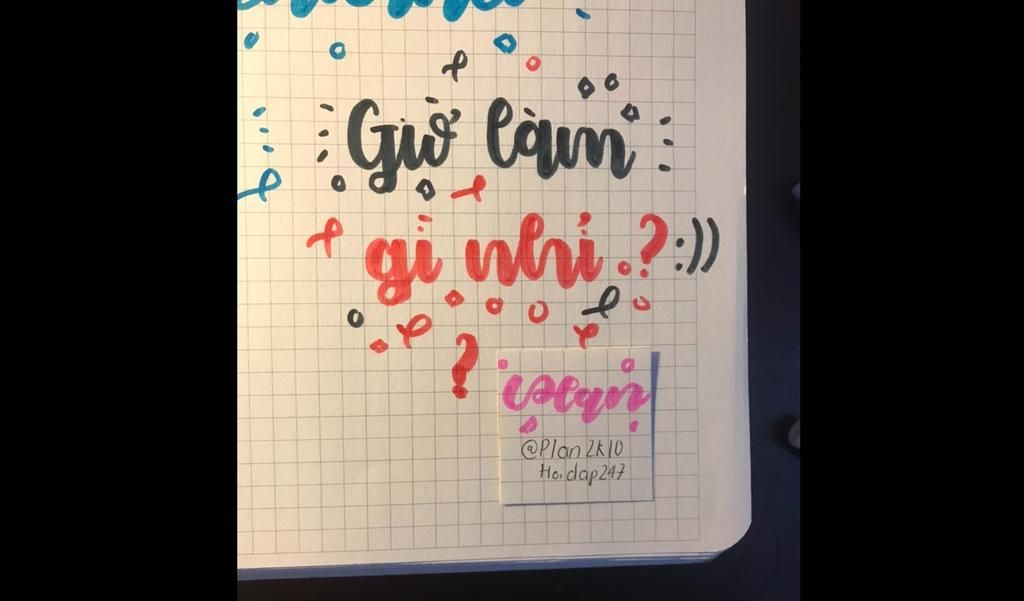 Giờ làm
gì nhỉ.?:))
?
Plan
@Plan2k10
Hoidap247